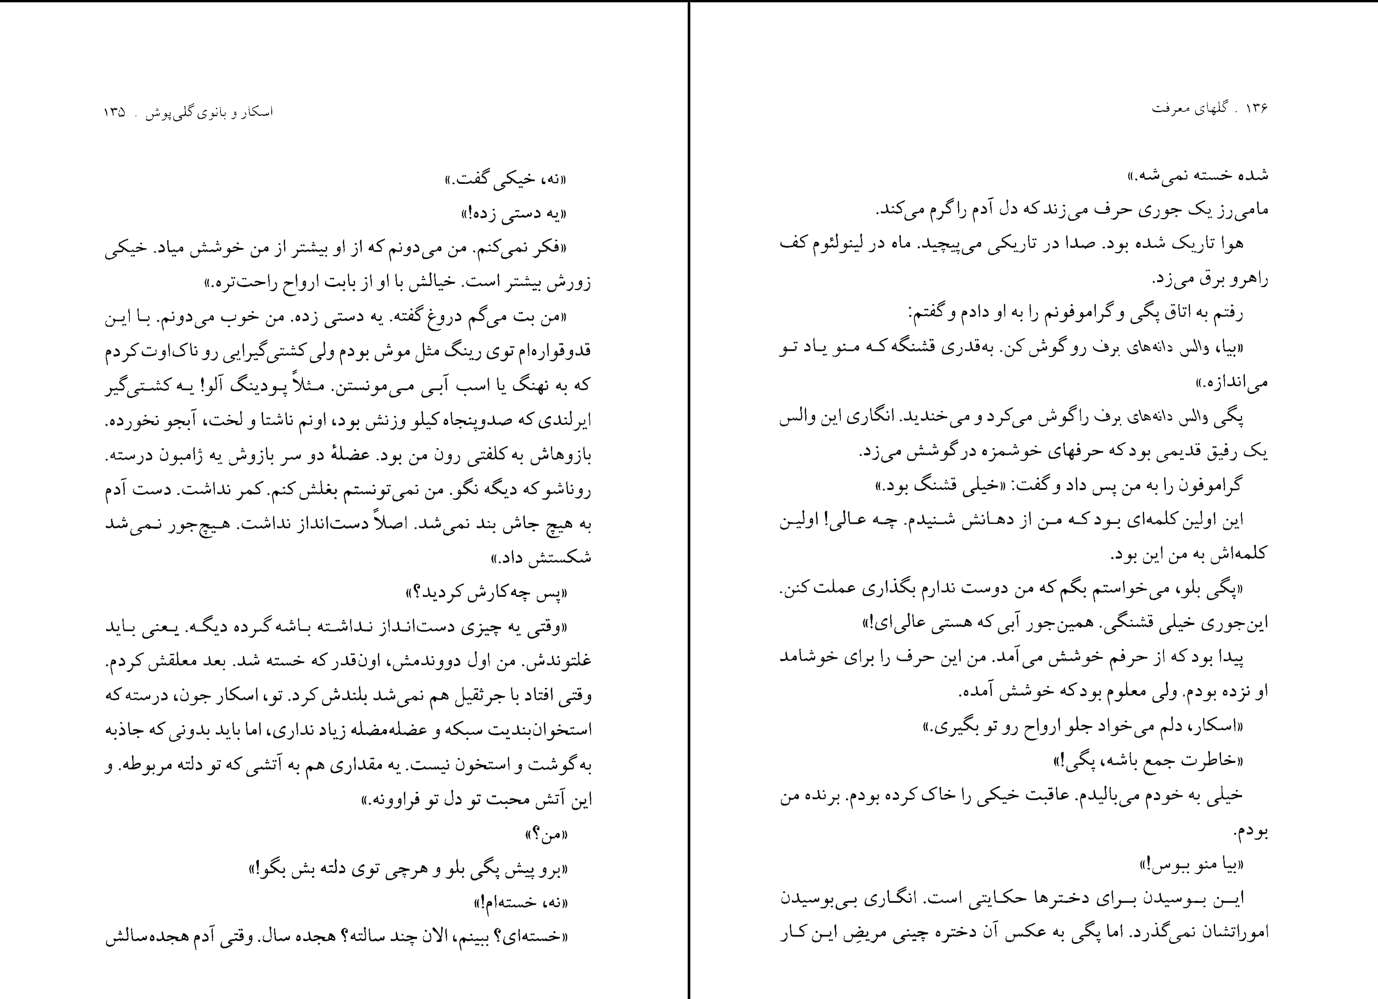 اسکار و بانوی گلی‌پوش . ۱۳۵
«نه، خیکی گفت.»
«یه دستی زده!»
«فکر نمی‌کنم. من می‌دونم که از او بیشتر از من خوشش میاد. خیکی
زورش بیشتر است. خیالش با او از بابت ارواح راحت‌تره.»
«من بت می‌گم دروغ گفته. یه دستی زده. من خوب می‌دونم. با این
قدوقواره‌ام توی رینگ مثل موش بودم ولی کشتی‌گیرایی رو ناک‌اوت کردم
که به نهنگ یا اسب آبی می‌مونستن. مثلاً پودینگ آلو! یه کشتی‌گیر
ایرلندی که صدوپنجاه کیلو وزنش بود، اونم ناشتا و لخت، آبجو نخورده.
بازوهاش به کلفتی رون من بود. عضلهٔ دو سر بازوش یه ژامبون درسته.
روناشو که دیگه نگو. من نمی‌تونستم بغلش کنم. کمر نداشت. دست آدم
به هیچ جاش بند نمی‌شد. اصلاً دست‌انداز نداشت. هیچ‌جور نمی‌شد
شکستش داد.»
«پس چه‌کارش کردید؟»
«وقتی یه چیزی دست‌انداز نداشته باشه گرده دیگه. یعنی باید
غلتوندش. من اول دووندمش، اون‌قدر که خسته شد. بعد معلقش کردم.
وقتی افتاد با جرثقیل هم نمی‌شد بلندش کرد. تو، اسکار جون، درسته که
استخوان‌بندیت سبکه و عضله‌مضله زیاد نداری، اما باید بدونی که جاذبه
به گوشت و استخون نیست. یه مقداری هم به آتشی که تو دلته مربوطه. و
این آتش محبت تو دل تو فراوونه.»
«من؟»
«برو پیش پگی بلو و هرچی توی دلته بش بگو!»
«نه، خسته‌ام!»
«خسته‌ای؟ ببینم، الان چند سالته؟ هجده سال. وقتی آدم هجده‌سالش
۱۳۶ . گلهای معرفت
شده خسته نمی‌شه.»
مامی‌رز یک جوری حرف می‌زند که دل آدم را گرم می‌کند.
هوا تاریک شده بود. صدا در تاریکی می‌پیچید. ماه در لینولئوم کف
راهرو برق می‌زد.
رفتم به اتاق پگی و گراموفونم را به او دادم و گفتم:
«بیا، والس دانه‌های برف رو گوش کن. به‌قدری قشنگه که منو یاد تو
می‌اندازه.»
پگی والس دانه‌های برف را گوش می‌کرد و می‌خندید. انگاری این والس
یک رفیق قدیمی بود که حرفهای خوشمزه در گوشش می‌زد.
گراموفون را به من پس داد و گفت: «خیلی قشنگ بود.»
این اولین کلمه‌ای بود که من از دهانش شنیدم. چه عالی! اولین
کلمه‌اش به من این بود.
«پگی بلو، می‌خواستم بگم که من دوست ندارم بگذاری عملت کنن.
این‌جوری خیلی قشنگی. همین‌جور آبی که هستی عالی‌ای!»
پیدا بود که از حرفم خوشش می‌آمد. من این حرف را برای خوشامد
او نزده بودم. ولی معلوم بود که خوشش آمده.
«اسکار، دلم می‌خواد جلو ارواح رو تو بگیری.»
«خاطرت جمع باشه، پگی!»
خیلی به خودم می‌بالیدم. عاقبت خیکی را خاک کرده بودم. برنده من
بودم.
«بیا منو ببوس!»
این بوسیدن برای دخترها حکایتی است. انگاری بی‌بوسیدن
اموراتشان نمی‌گذرد. اما پگی به عکس آن دختره چینی مریضِ این کار